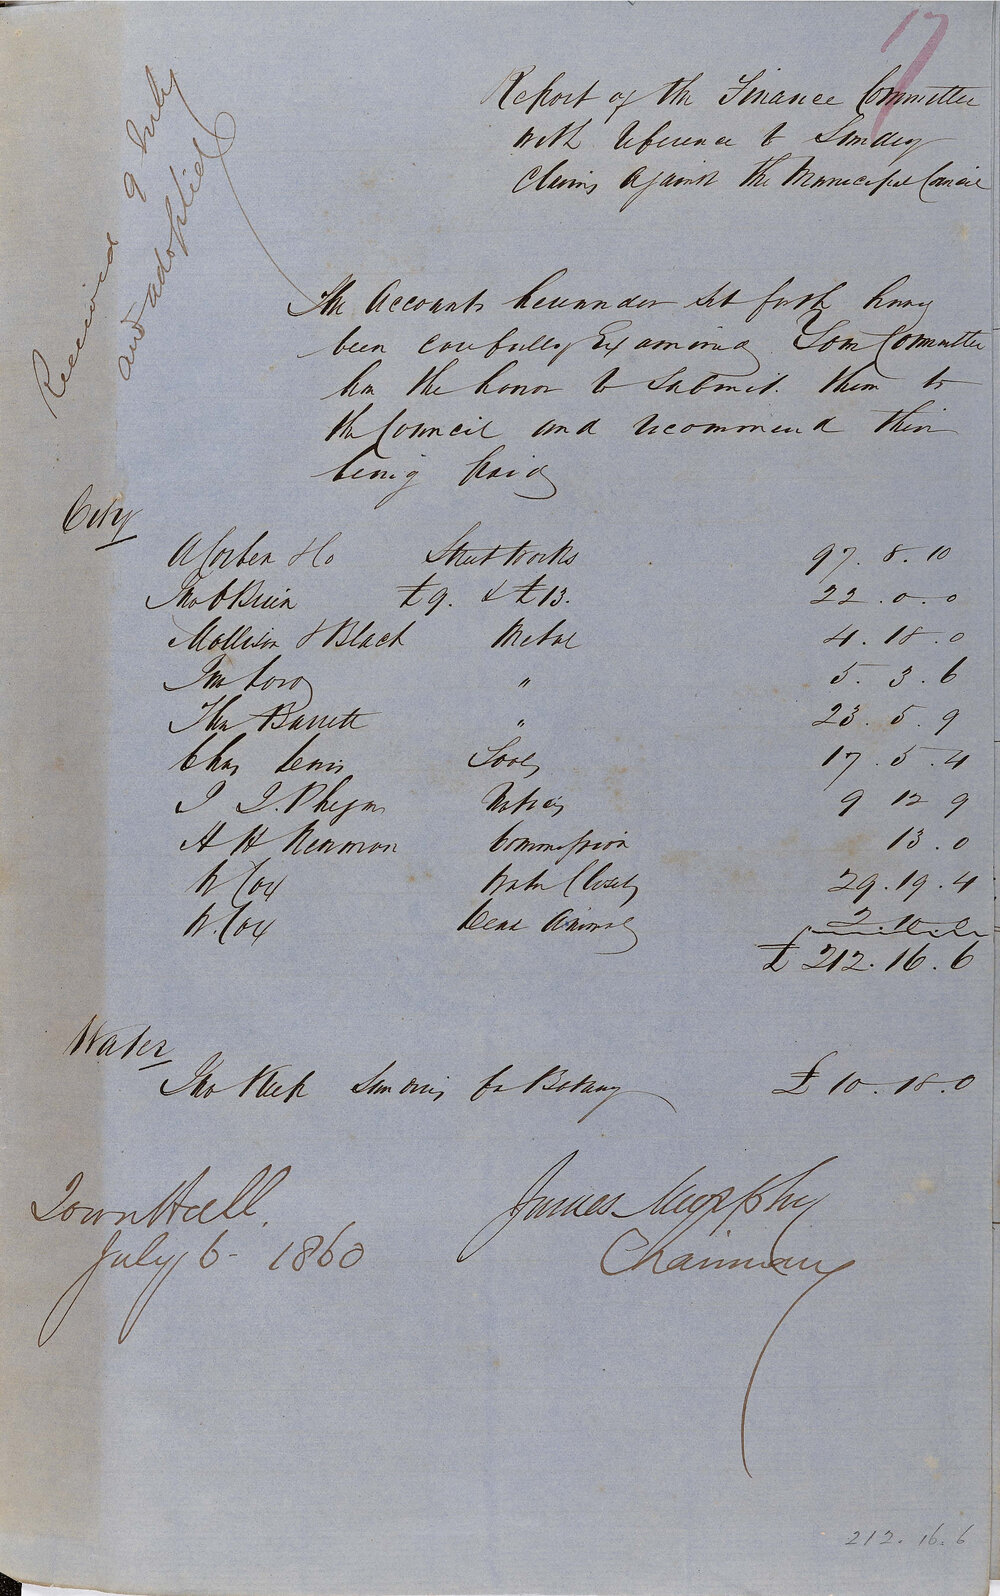 17
Report of the Finance Committee
with reference to Sundry
Claims against the Municipal Council
Received 9 July
and adopted
The Accounts hereunder set forth having
been carefully Examined Your Committee
has the honor to submit them to
the Council and recommend their
being paid
City
A Corben & Co Street Works 97. 8. 10
Tho OBrien £9. & £13. 22. 0. 0
Mollison & Black Metal 4. 18. 0
" 5. 3. 6
Thos Barrett " 23. 5. 9
Chas Lewis 17. 5. 4
9 12 9
A H Newman Commission 13. 0
W Cox Water Closets 29. 19. 4
W. Cox Dead Animals 2. 10.
£ 212. 16. 6
Water
Tho Sundries for Botany £ 10. 18. 0
Town Hall.
July 6 - 1860
James Murphy
Chairman
212. 16. 6